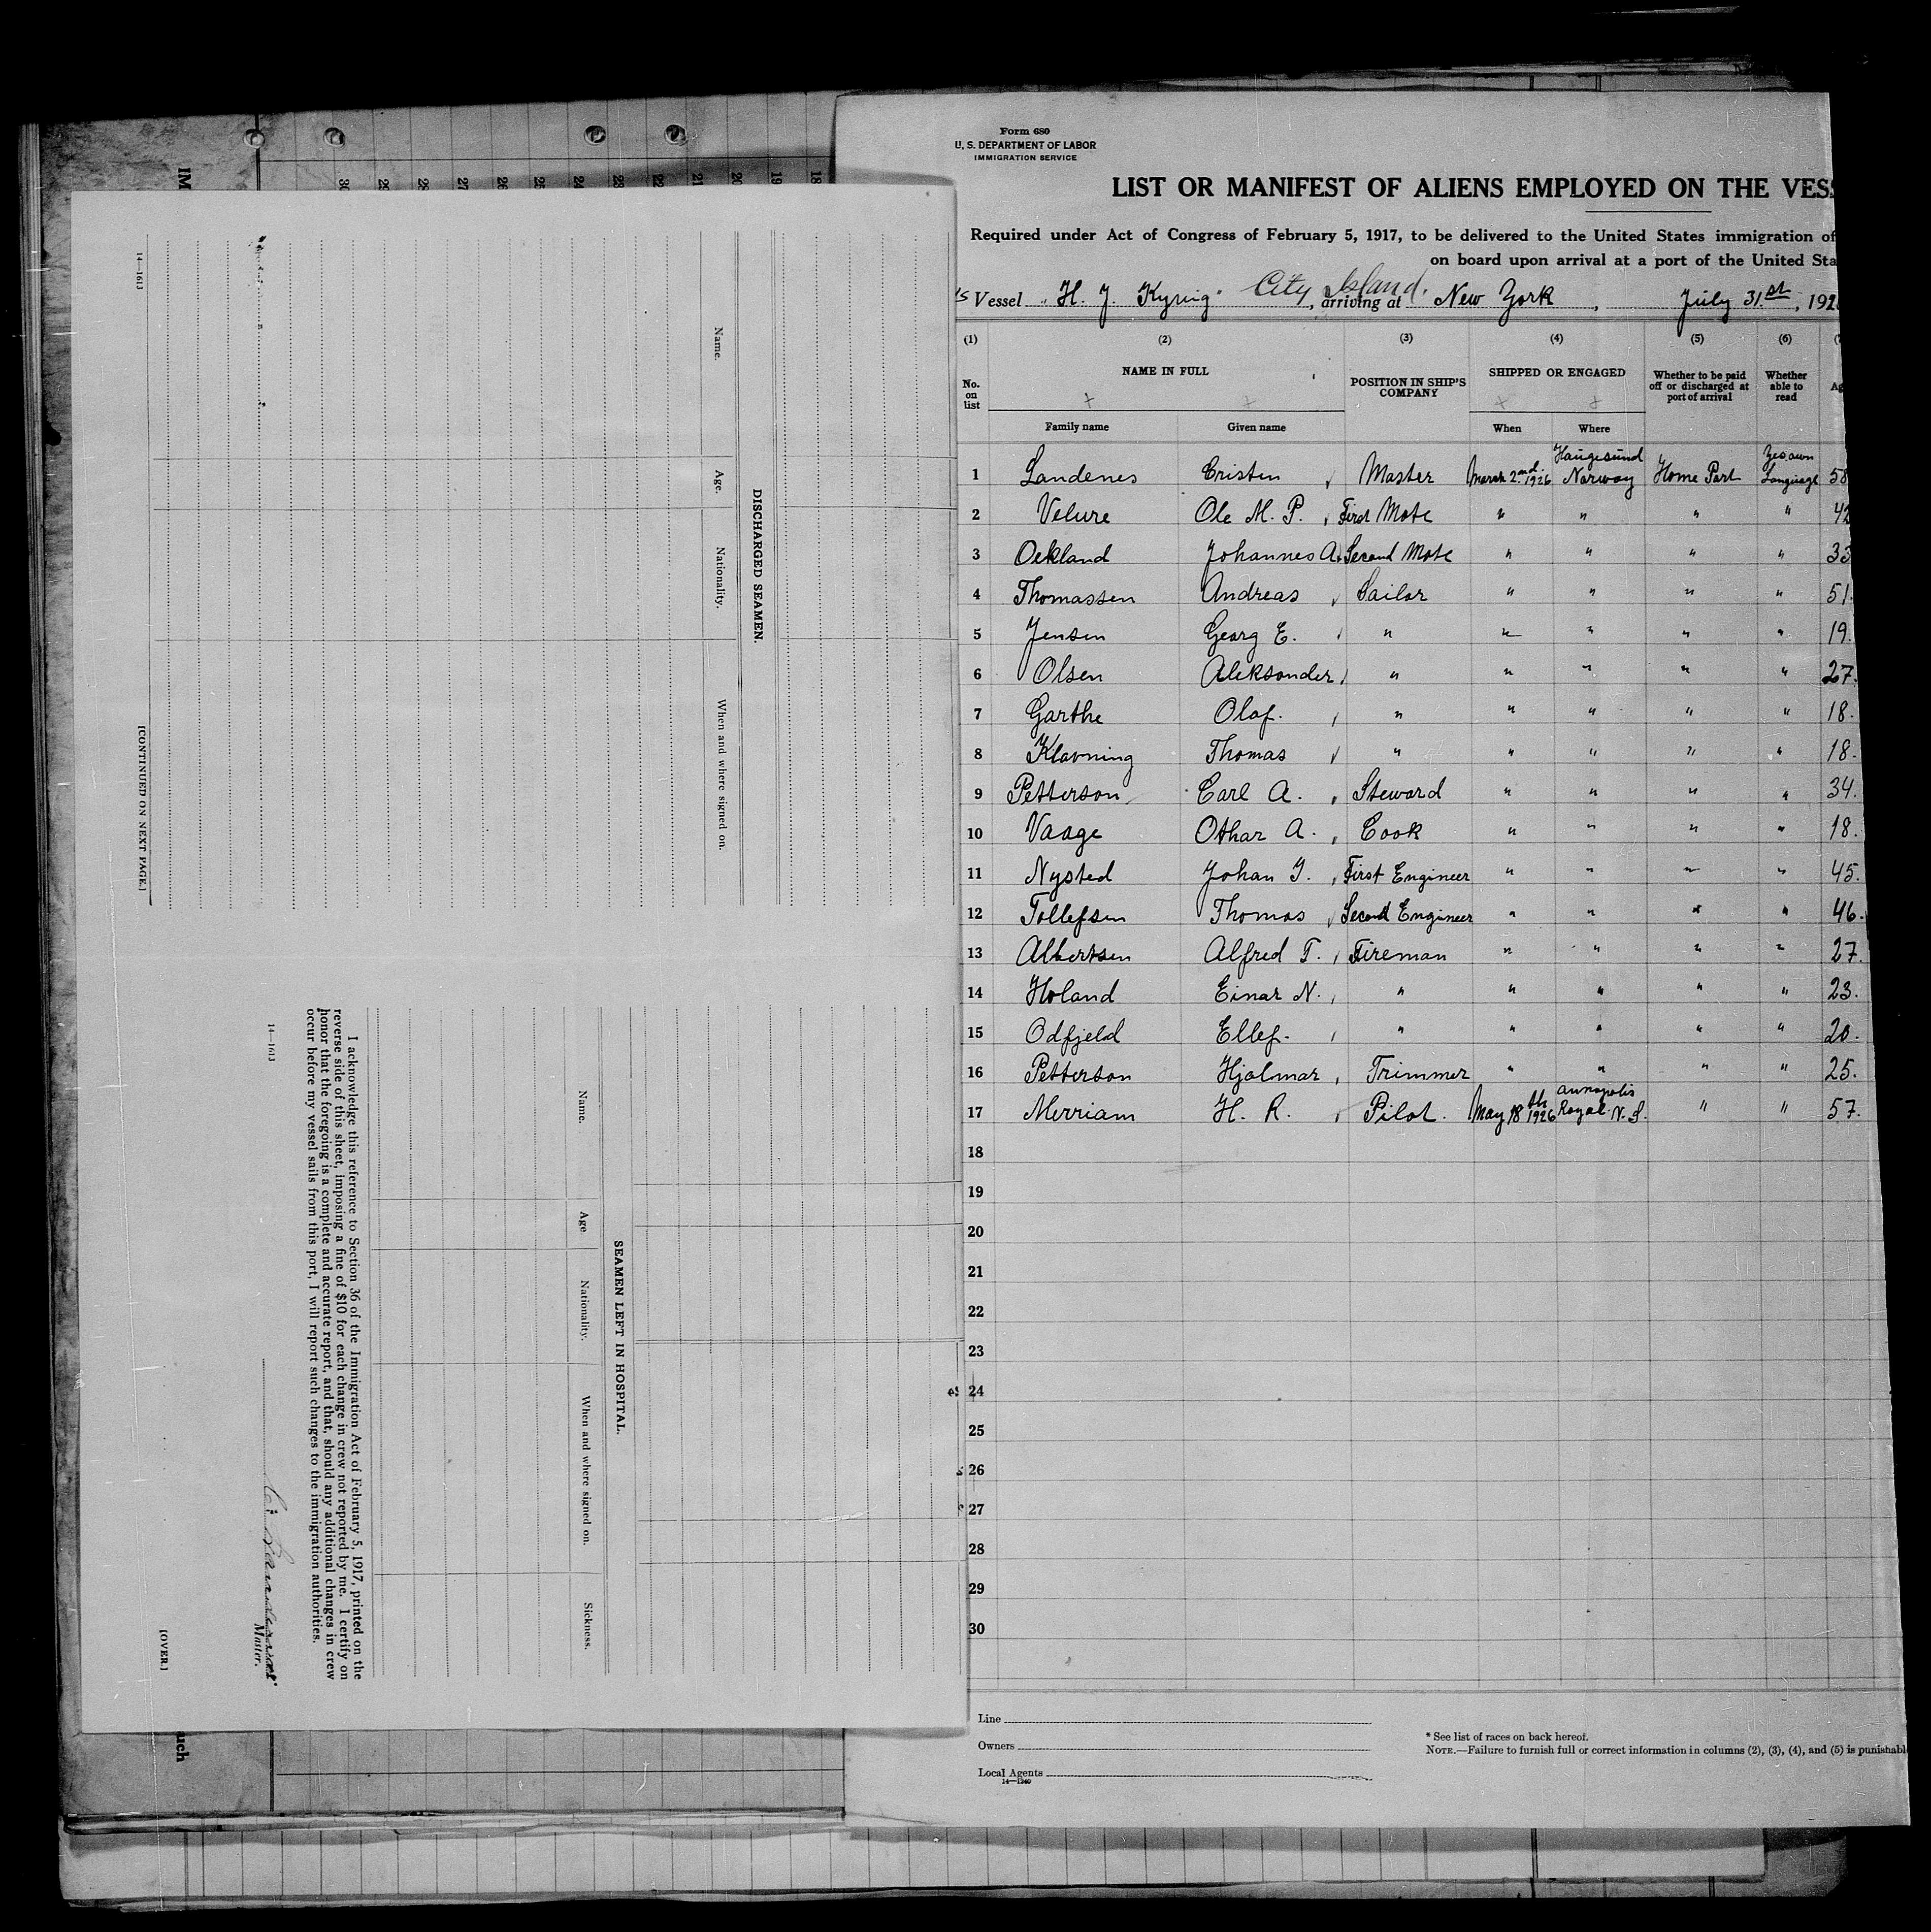 Form 680
U. S. DEPARTMENT OF LABOR
IMMIGRATION SERVICE
LIST OR MANIFEST OF ALIENS EMPLOYED ON THE VESS
Required under Act of Congress of February 5, 1917, to be delivered to the United States immigration of
on board upon arrival at a port of the United Sta
City Island.
Vessel "H. J. Kyvig", arriving at New York, July 31st, 192
(1) (2) (3) (4) (5) (6)
No. on list NAME IN FULL POSITION IN SHIP'S COMPANY SHIPPED OR ENGAGED Whether to be paid off or discharged at port of arrival Whether able to read Ag
Family name Given name When Where
1 Landenes Cristen Master March 2nd 1926 Haugesund Norway Home Port Yes own Language 58
2 Velure Ole M. P. First Mate " " " " 42
3 Oekland Johannes A. Second Mate " " " " 33
4 Thomassen Andreas Sailor " " " " 51.
5 Jensen Georg E. " " " " " 19.
6 Olsen Aleksander " " " " " 27.
7 Garthe Olaf. " " " " " 18.
8 Klovning Thomas " " " " " 18.
9 Petterson Carl A. Steward " " " " 34.
10 Vaage Othar A. Cook " " " " 18.
11 Nysted Johan J. First Engineer " " " " 45.
12 Tollefsen Thomas Second Engineer " " " " 46.
13 Albertsen Alfred T. Fireman " " " " 27.
14 Holand Einar N. " " " " " 23.
15 Odfjeld Ellef. " " " " " 20.
16 Petterson Hjalmar Trimmer " " " " 25.
17 Merriam H. R. Pilot. May 18th 1926 Annapolis Royal. N. S. " " 57.
18
19
20
21
22
23
24
25
26
27
28
29
30
Line
Owners
Local Agents
14—1240
* See list of races on back hereof.
NOTE.—Failure to furnish full or correct information in columns (2), (3), (4), and (5) is punishabl
DISCHARGED SEAMEN.
Name. Age. Nationality. When and where signed on.
14—1613
[CONTINUED ON NEXT PAGE.]
SEAMEN LEFT IN HOSPITAL.
Name. Age Nationality. When and where signed on. Sickness.
I acknowledge this reference to Section 36 of the Immigration Act of February 5, 1917, printed on the
reverse side of this sheet, imposing a fine of $10 for each change in crew not reported by me. I certify on
honor that the foregoing is a complete and accurate report, and that, should any additional changes in crew
occur before my vessel sails from this port, I will report such changes to the immigration authorities.
Master.
14—1613
[OVER.]
IM
30 29 28 27 26 25 24 23 22 21 20 19 18
uch